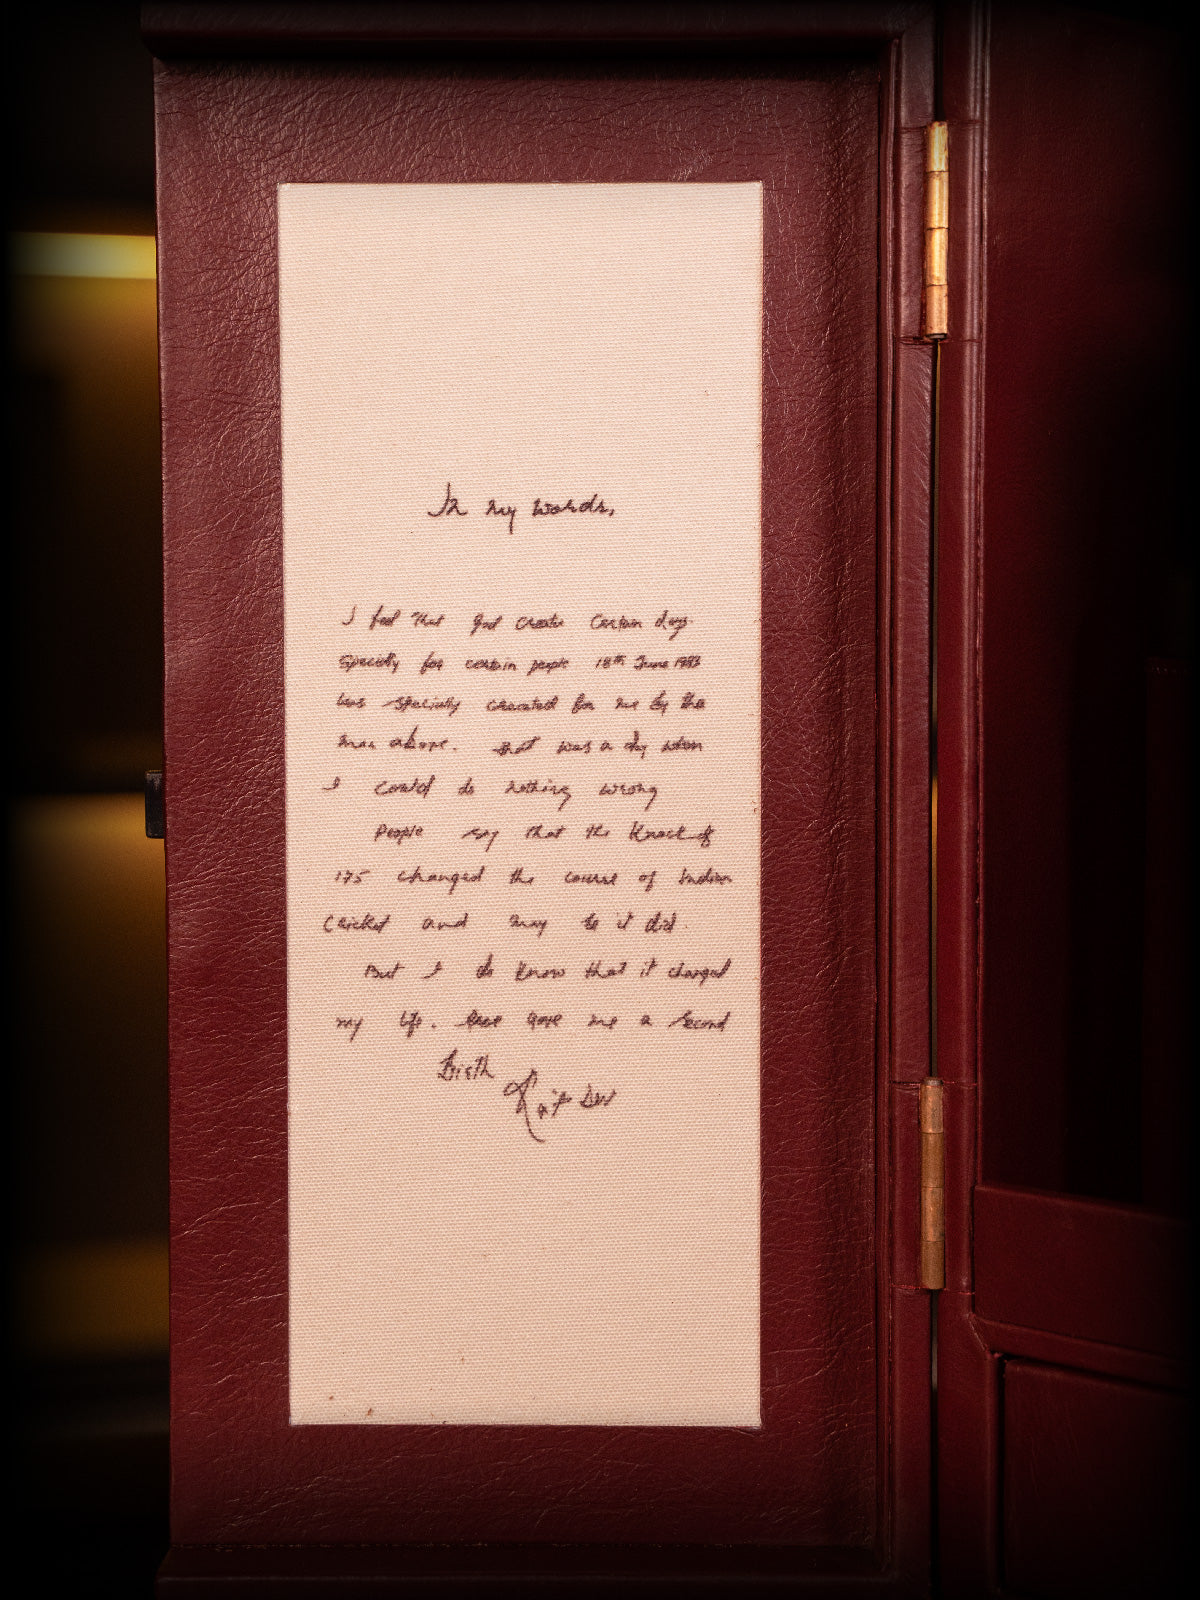 In my words,
I feel that god create certain days
specially for certain people 18th June 1983
was specially created for me by the
man above. that was a day when
I could do nothing wrong
People say that the knock of
175 changed the course of Indian
Cricket and may be it did.
But I do know that it changed
my life. gave me a second
Birth
Kapil Dev